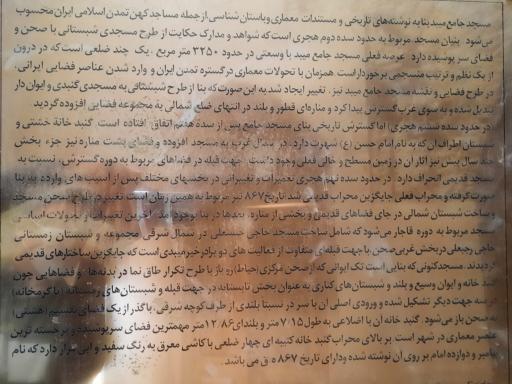 مسجد جامع میبد بنا به نوشته‌های تاریخی و مستندات معماری و باستان شناسی از جمله مساجد کهن تمدن اسلامی ایران محسوب
می‌شود. بنیان مسجد مربوط به حدود سده دوم هجری است که شواهد و مدارک حکایت از طرح مسجدی شبستانی با صحن و
فضای سرپوشیده دارد. عرصه فعلی مسجد جامع میبد با وسعتی در حدود ۳۲۵۰ متر مربع، یک چند ضلعی است که در درون
از یک نظم و ترتیب منسجمی برخوردار است. همزمان با تحولات معماری در گستره تمدن ایران و وارد شدن عناصر فضایی ایرانی،
در طرح فضایی و نقشه مسجد جامع میبد نیز، تغییر ایجاد شد به این صورت که بنا از طرح شبستانی به مسجدی گنبدی و ایوان دار
تبدیل شده و به سوی غرب گسترش پیدا کرد و مناره‌ای قطور و بلند در انتهای ضلع شمالی به مجموعه فضایی افزوده گردید
در حدود سده ششم هجری) اما گسترش تاریخی بنای مسجد جامع پس از سده هفتم اتفاق افتاده است. گنبد خانهٔ خشتی و
شبستان اطراف آن که به نام امام حسن (ع) شهرت دارد، در شمال غرب به مسجد افزوده و فضای پشت مناره نیز جزء بخش
چند سال پیش نیز آثار آن در زمین مسطح و خالی فعلی وجود داشت. جهت قبله در فضاهای مربوط به دوره گسترش، نسبت به
مسجد قدیمی انحراف دارد. در حدود سده نهم هجری تعمیرات و تغییراتی در بخشهای مختلف پس از آسیب های وارده به بنا
صورت گرفته و محراب فعلی جایگزین محراب قدیمی شد تاریخ ۸۶۷ نیز مربوط به همین زمان است تغییر در طرح صحن مسجد
و ساخت شبستان شمالی در جای فضاهای قدیمی و بخشی از مناره، بعدها در بنا بوجود آمد. آخرین تغییرات و تحولات اساسی
مسجد مربوط به دوره قاجار می‌شود که شامل ساخت مسجد حاجی حسنعلی در شمال شرقی مجموعه و شبستان زمستانی
حاجی رجبعلی در بخش غربی صحن، با جهت قبله‌ای متفاوت از فعالیت های دو برادر خیر میبدی است که جایگزین ساختارهای قدیمی
گردیدند. مسجد کنونی که بنایی است تک ایوانی که از صحن مرکزی (حیاط) رو باز با طرح تکرار طاق نما در بدنه‌ها و فضاهایی چون
گنبد خانه و ایوان وسیع و بلند و شبستان‌های کناری به عنوان بخش تابستانه در جهت قبله و شبستان‌های زمستانه (یا گرمخانه)
در سه جهت دیگر تشکیل شده و ورودی اصلی آن با سر در نسبتا بلندی از طرف کوچه شرقی، با گذر از یک فضای تقسیم (هشتی)
به صحن باز می‌شود. گنبد خانه آن با اضلاعی به طول ۷/۱۵ متر و بلندای ۱۲/۸۶ متر مهمترین فضای سرپوشیده و برجسته ترین
عنصر معماری در شهر است. بر بالای محراب گنبد خانه کتیبه ای چهار ضلعی با کاشی معرق به رنگ سفید و آبی قرار دارد که نام
پیامبر و دوازده امام بر روی آن نوشته شده و دارای تاریخ ۸۶۷ ه.ق می باشد.